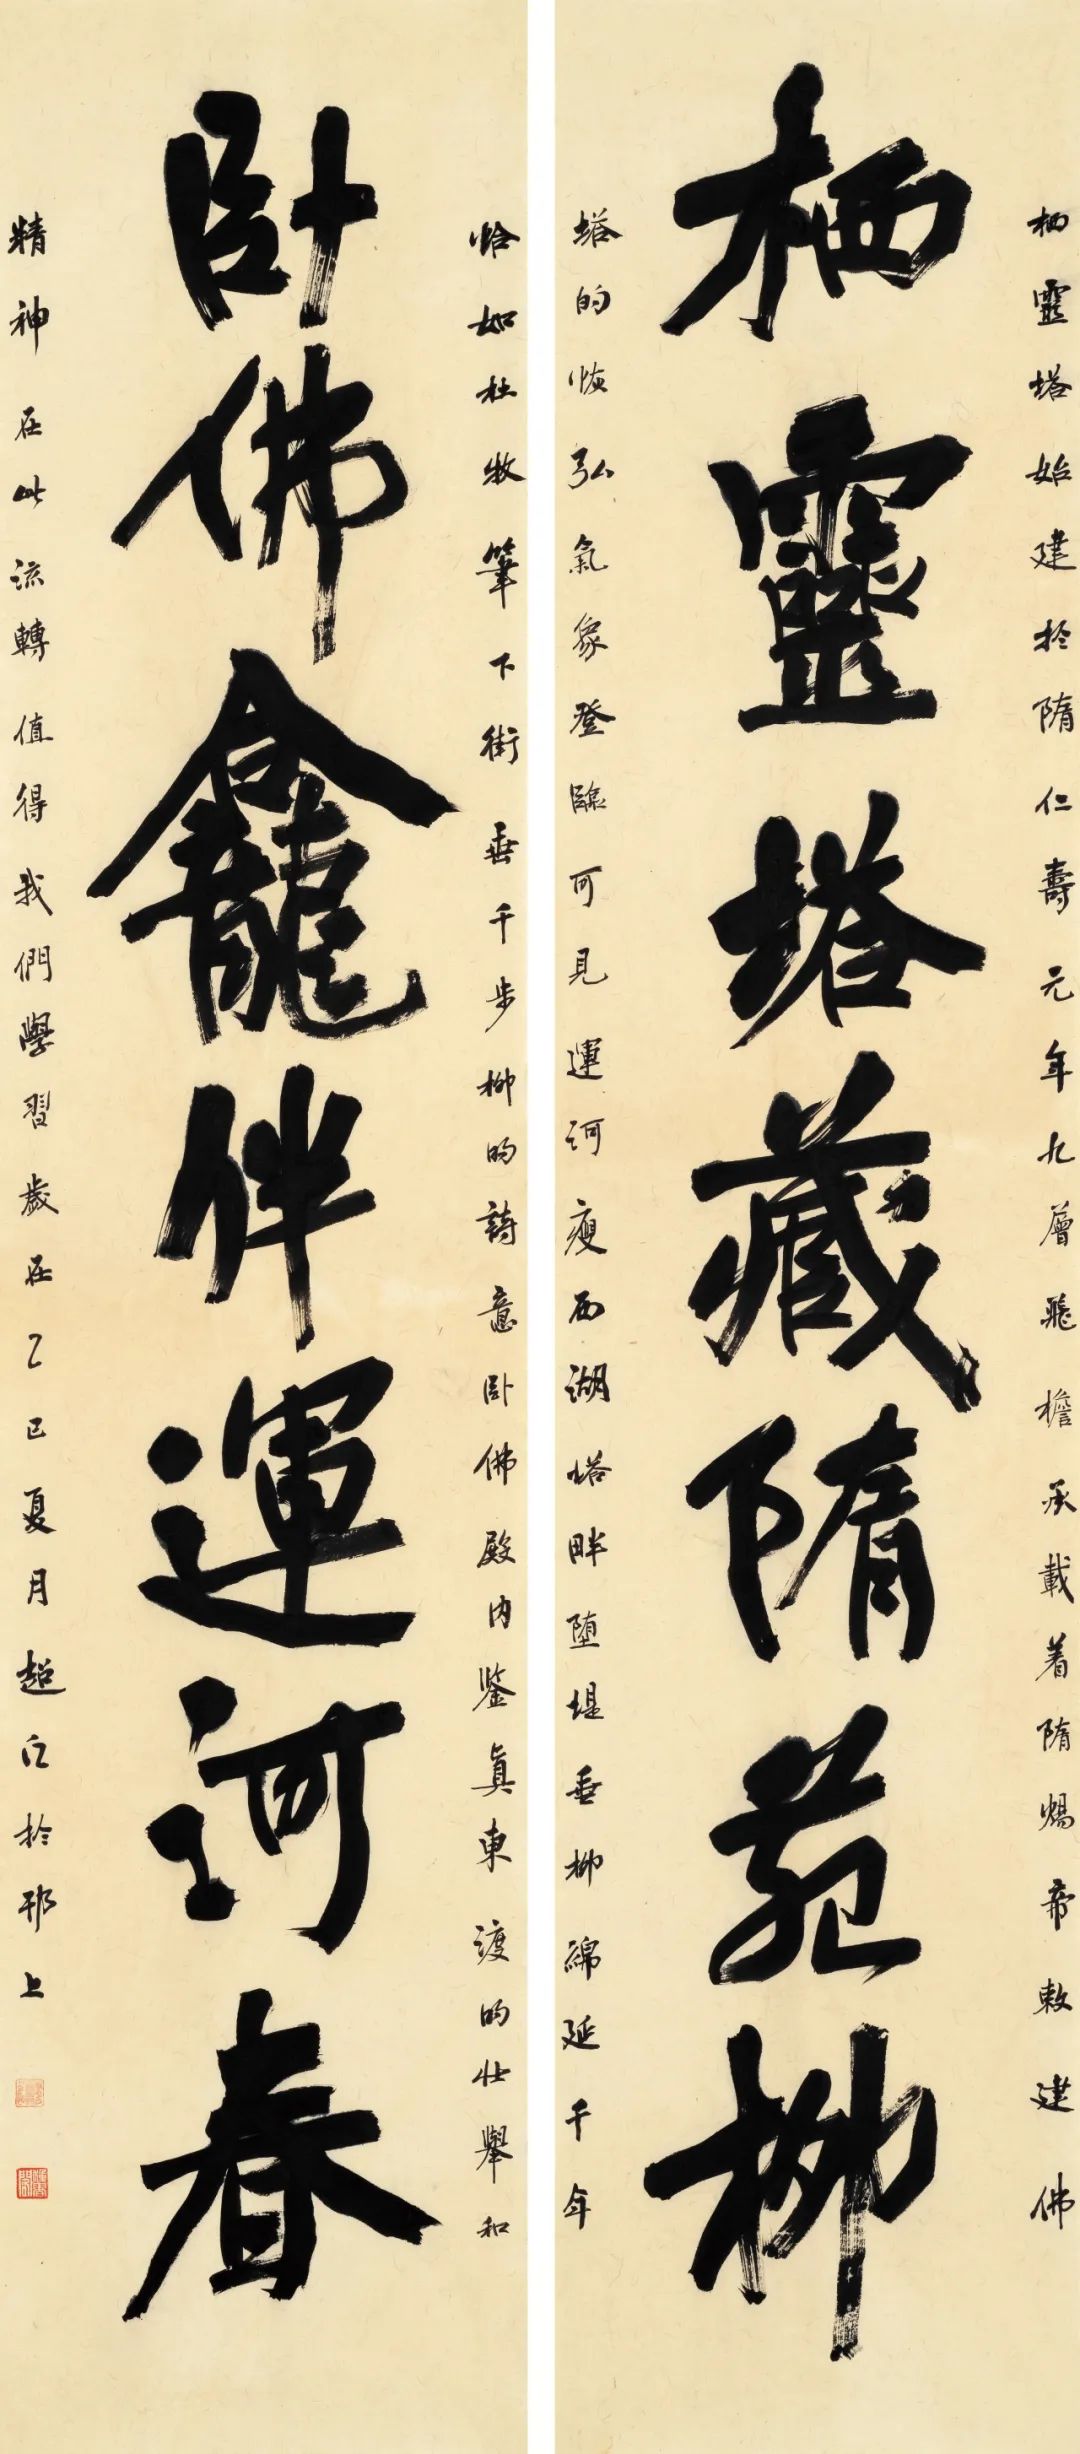 栖靈塔藏隋苑柳
栖靈塔始建於隋仁壽元年九層飛檐承載着隋煬帝敕建佛
塔的恢弘氣象登臨可見運河瘦西湖塔畔堕堤垂柳綿延千年
卧佛龕伴運河春
恰如杜牧筆下街垂千步柳的詩意卧佛殿内鑒真東渡的壮舉和
精神在此流轉值得我們學習歲在乙巳夏月超仁於邗上